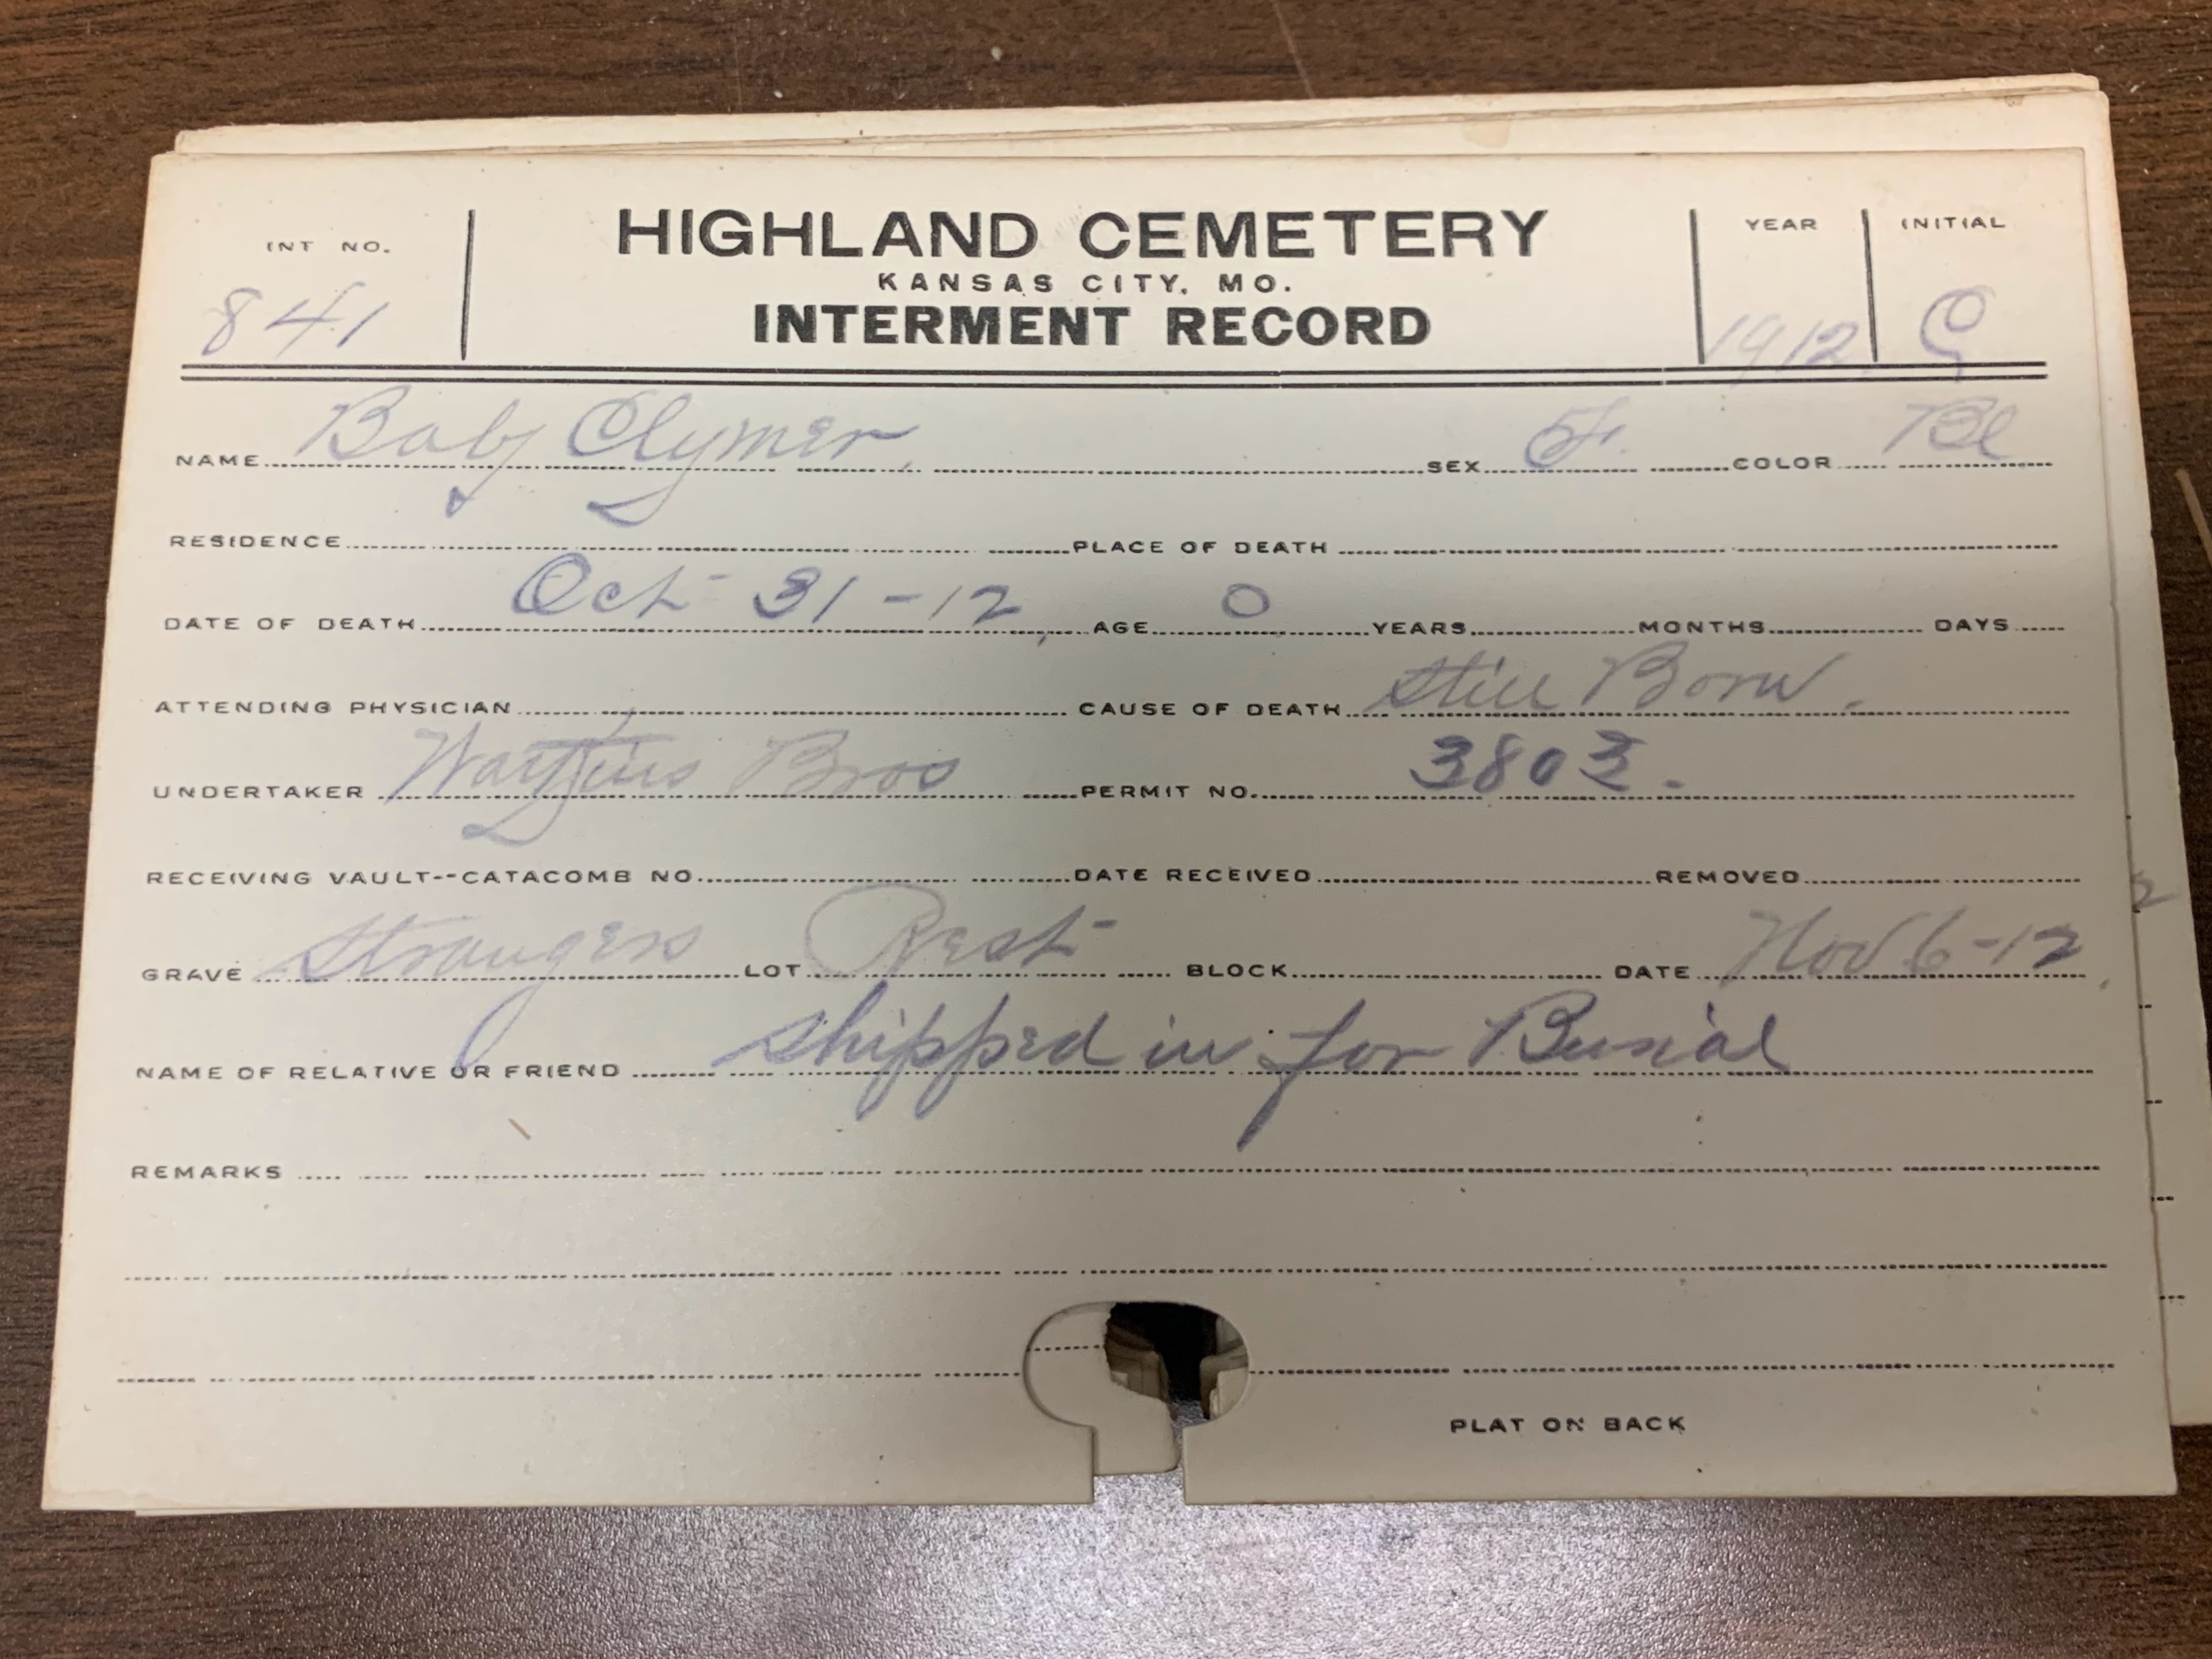 INT NO. HIGHLAND CEMETERY YEAR INITIAL
KANSAS CITY, MO.
841 INTERMENT RECORD 1912 C
NAME Baby Clymer. SEX F. COLOR Bl
RESIDENCE PLACE OF DEATH
DATE OF DEATH Oct-31-12, AGE 0 YEARS MONTHS DAYS
ATTENDING PHYSICIAN CAUSE OF DEATH Still Born.
UNDERTAKER Bros PERMIT NO. 3803.
RECEIVING VAULT--CATACOMB NO. DATE RECEIVED REMOVED
GRAVE Strangers LOT Rest BLOCK DATE Nov 6-12,
NAME OF RELATIVE OR FRIEND Shipped in for Burial
REMARKS
PLAT ON BACK